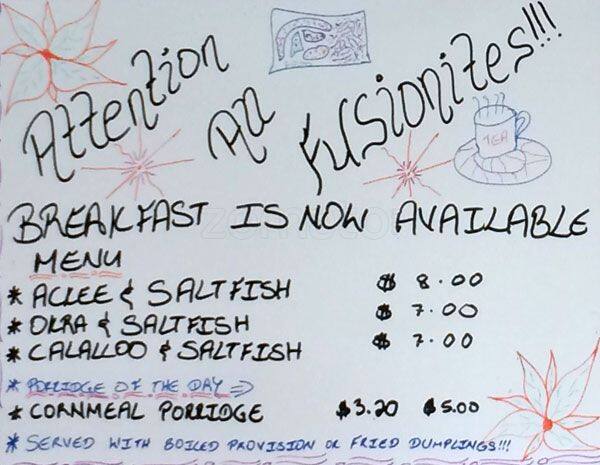 Attention All Fusionites!!!
TEA
BREAKFAST IS NOW AVAILABLE
MENU
* ACKEE & SALTFISH $ 8.00
* OKRA & SALTFISH $ 7.00
* CALALLOO & SALTFISH $ 7.00
* PORRIDGE OF THE DAY ⇒
* CORNMEAL PORRIDGE $3.20 $5.00
* SERVED WITH BOILED PROVISION OR FRIED DUMPLINGS!!!